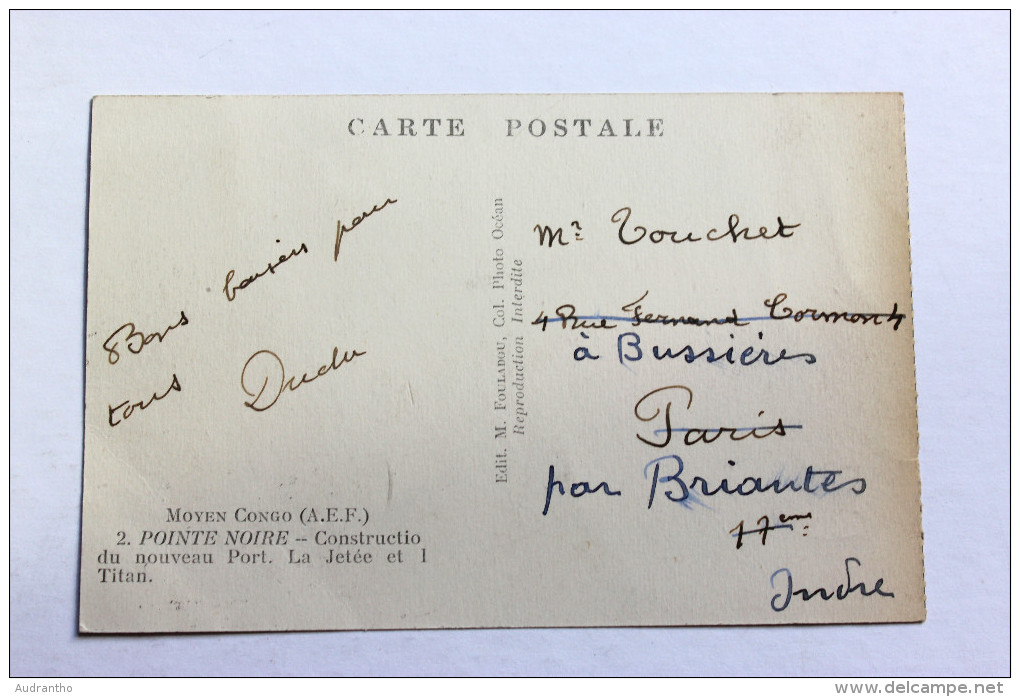 CARTE POSTALE
Bons baisers pour
tous Dudu
MOYEN CONGO (A.E.F.)
2. POINTE NOIRE -- Constructio
du nouveau Port. La Jetée et l
Titan.
Edit. M. FOULADOU, Col. Photo Océan
Reproduction Interdite
Mr Touchet
4 Rue Fernand Cormon 4
à Bussières
Paris
par Briantes
17eme
Indre
Audrantho
www.delcampe.net